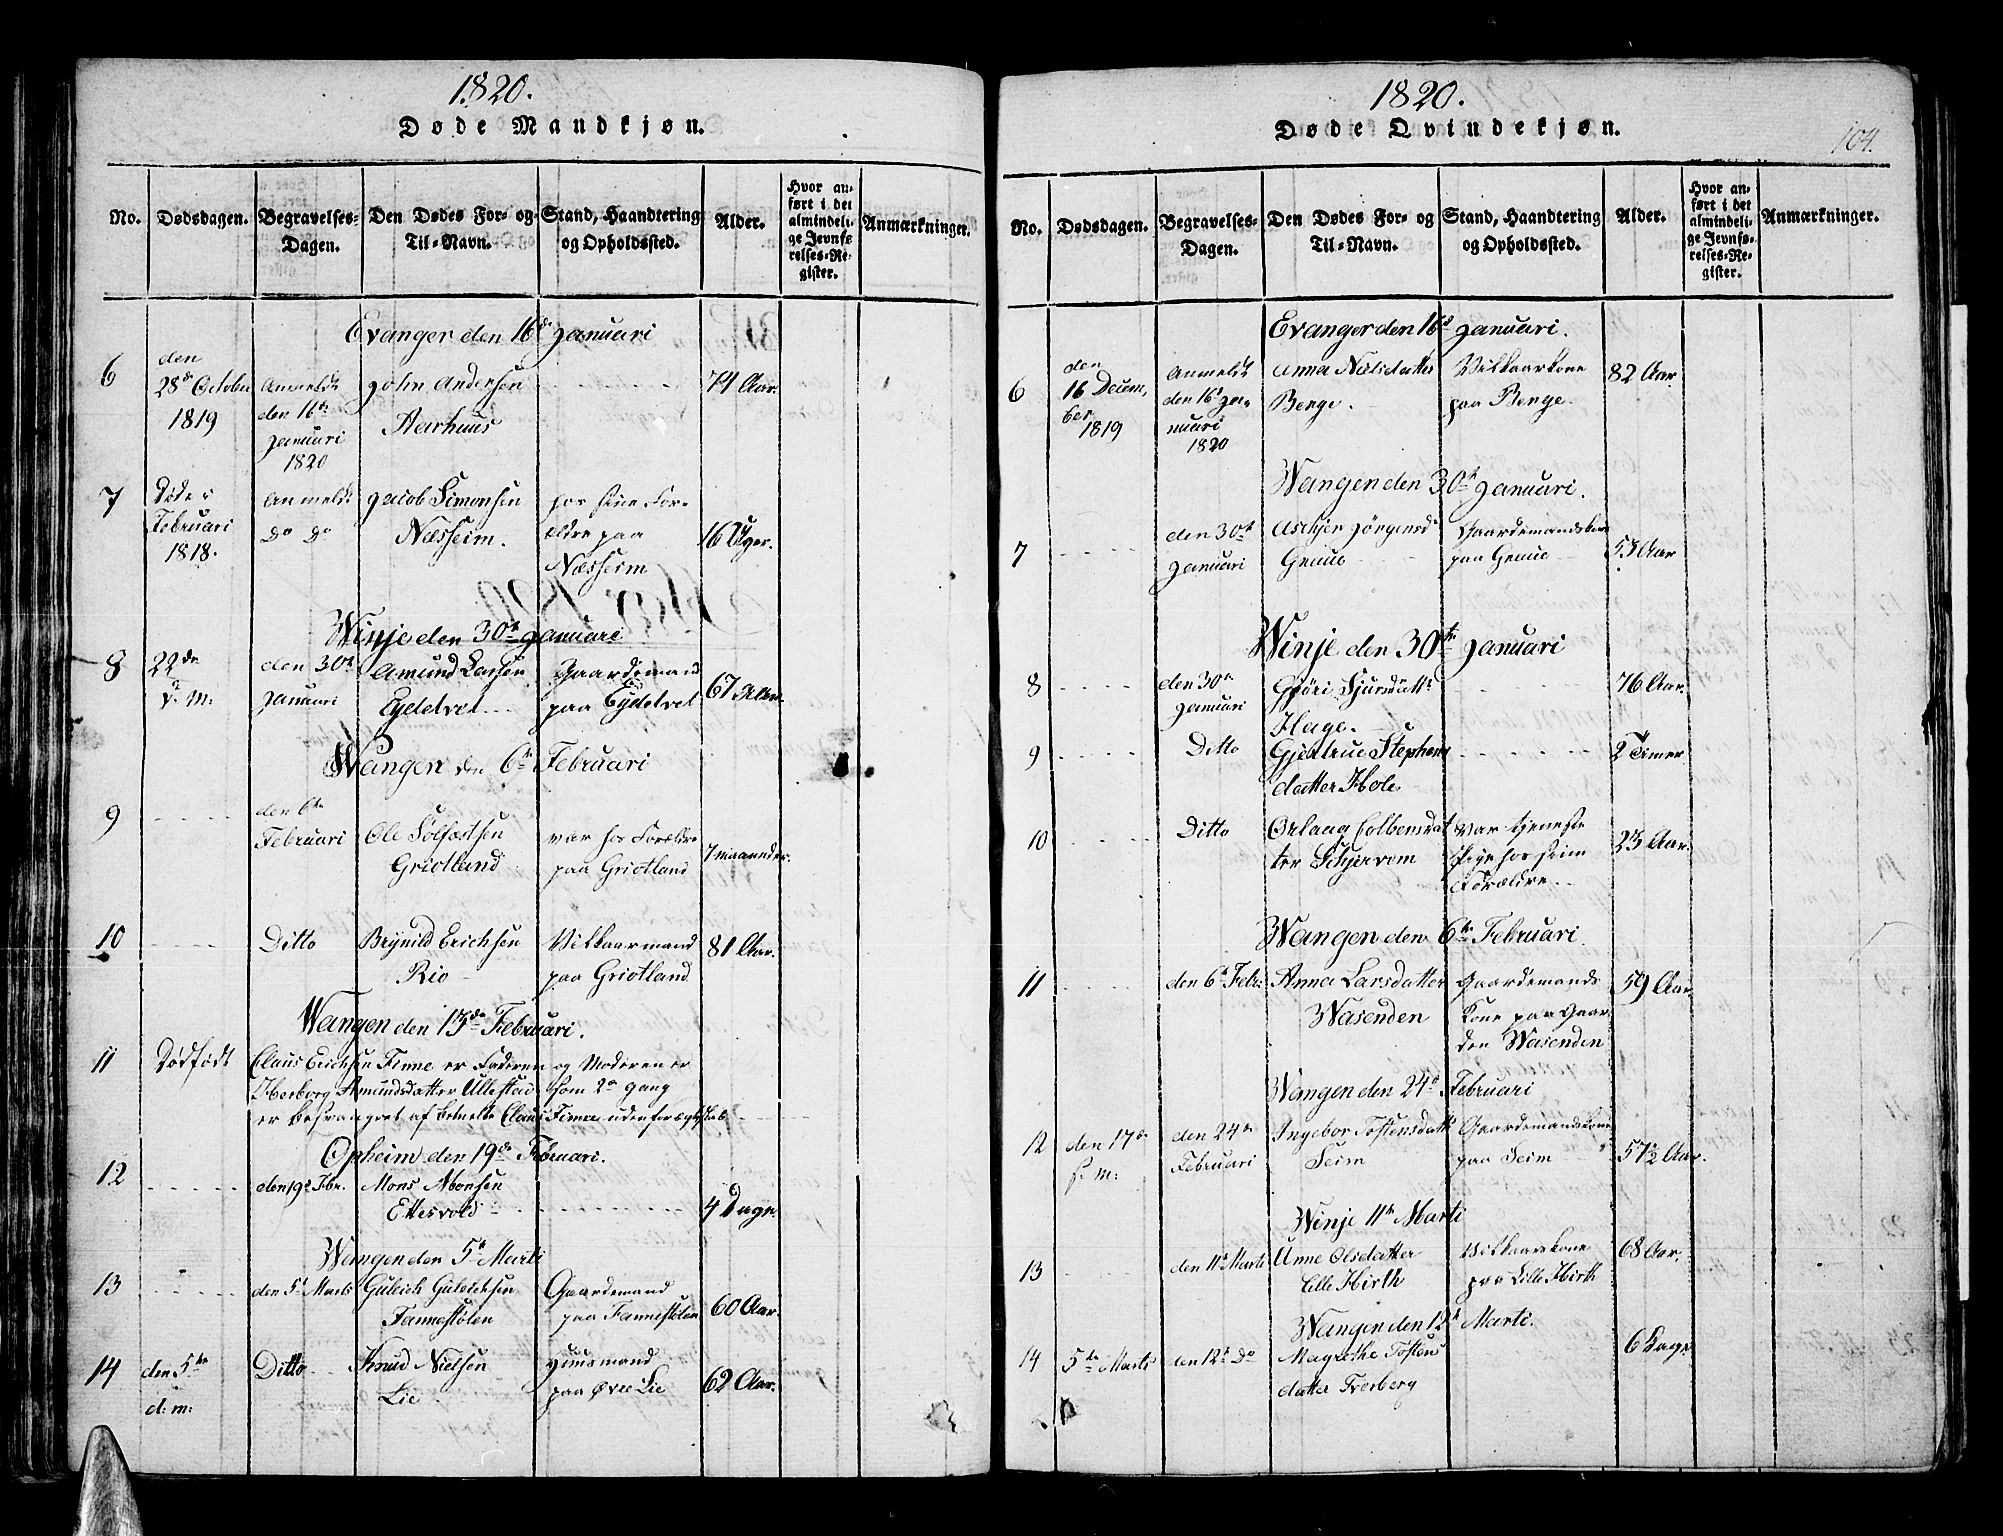 1820.
Døde Mandkjøn.
No.
Dødsdagen.
Begravelses-
Dagen.
Den Dødes For- og
Til-Navn.
Stand, Haandtering
og Opholdssted.
Alder.
Hvor an-
ført i det
almindeli-
ge Jevnfø-
relses-Re-
gister.
Anmærkninger.
Evanger den 16de Januari
6
den
28de October
1819
Anmeldt
den 16de
Januari
1820
John Andersen
Aarhuus
74 Aar.
7
Døde i
Februari
1818.
Anmeldt
do do
Jacob Simonsen
Næsheim.
hos sine For-
ældre paa
Næsheim
16 Uger.
Winje den 30te Januari
8
22de
s. M:
den 30te
Januari
Amund Larsen
Eydetvet
Gaardemand
paa Eydetvet
67 Aar.
Wangen den 6te Februari
9
den 6te
Februari
Ole Solfæstsen
Griotland
var hos Forældre
paa Griotland
7 maaneder.
10
Ditto
Brynild Erichsen
Rio
Vilkaarmand
paa Griotland
81 Aar.
Wangen den 13de Februari.
11
Dødfødt
Claus Erichsen Finne er Faderen og Moderen er
Herborg Amundsdatter Ullestad som 2n gang
er besvangret af bemelte Claus Finne udenfor ægteskab
Opheim den 19de Februari.
12
den 19de Fbr.
Mons Monsen
Ettesvold
4 Dage.
Wangen den 5te Marti
13
den 5te Marts
Guleich Guleichsen
Fannestølen
Gaardemand
paa Fannestølen
60 Aar.
14
den 5te
d: m:
Ditto
Knud Nielsen
Lie
Huusmand
paa Øvre Lie
62 Aar.
1820.
Døde Qvindekjøn.
104.
No.
Dødsdagen.
Begravelses-
Dagen.
Den Dødes For- og
Til-Navn.
Stand, Haandtering
og Opholdssted.
Alder.
Hvor an-
ført i det
almindeli-
ge Jevnfø-
relses-Re-
gister.
Anmærkninger.
Evanger den 16de Januari.
6
den
16 Decem-
ber
1819
Anmeldt
den 16de Ja-
nuari
1820
Anna Nielsdatter
Berge.
Vilkaarkone
paa Berge.
82 Aar.
Wangen den 30te Januari.
7
den 30te
Januari
Askjer Jørgensd
Graue
Gaardemandskone
paa Graue
53 Aar
Winje den 30te Januari
8
den 30te
Januari
Gjøri Sjursdatter
Hage.
76 Aar.
9
Ditto
Gjertrue Stephens
datter Hole
2 Timer
10
Ditto
Orlaug Colbensdat
ter Schjervem
var tjeneste
Pige hos siine
Forældre.
23 Aar.
Wangen den 6te Februari
11
den 6te Febr:
Anna Larsdatter
Wasenden
Gaardemands
Kone paa Gaar
den Wasenden
59 Aar.
Wangen den 24de Februari
12
den 17de
s. m:
den 24de
Februari
Ingebor Tostensdatter
Seim
Gaardemandskone
paa Seim
57½ Aar.
Winje 11te Marti
13
den 11te Marti
Unne Olsdatter
Lille Hirth
Vilkaarskone
paa Lille Hirth
68 Aar.
Wangen den 12te Marti.
14
5te Marts
den 12te do
Magrethe Tostens
datter Træberg
6 Dage